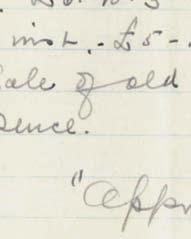 inst. - £5 -
ale of old
ence.
"Appr